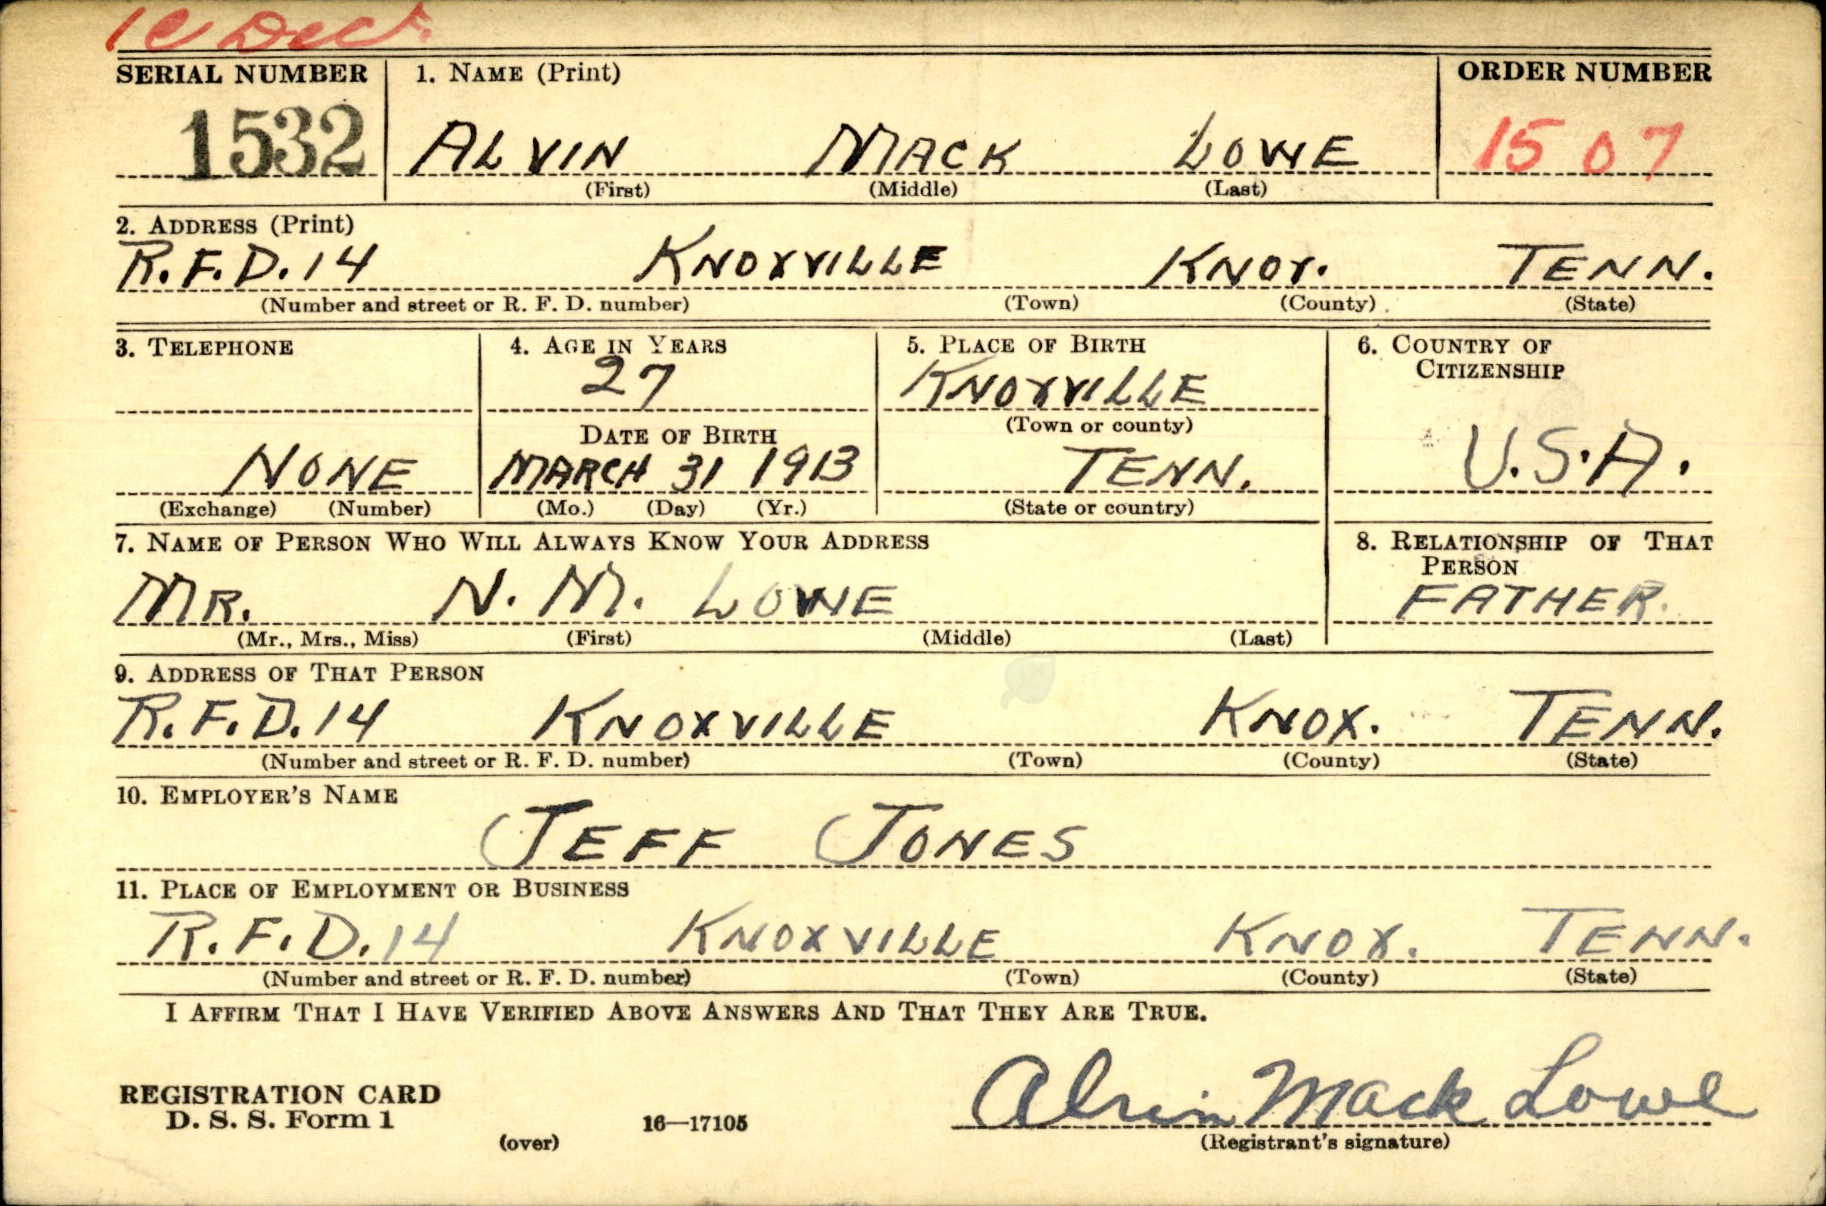 SERIAL NUMBER 1. NAME (Print) ORDER NUMBER
1532 ALVIN MACK LOWE 1507
(First) (Middle) (Last)
2. ADDRESS (Print)
R.F.D. 14 KNOXVILLE KNOX. TENN.
(Number and street or R. F. D. number) (Town) (County) (State)
3. TELEPHONE 4. AGE IN YEARS 5. PLACE OF BIRTH 6. COUNTRY OF
CITIZENSHIP
27 KNOXVILLE
(Town or county)
DATE OF BIRTH
NONE MARCH 31 1913 TENN. U.S.A.
(Exchange) (Number) (Mo.) (Day) (Yr.) (State or country)
7. NAME OF PERSON WHO WILL ALWAYS KNOW YOUR ADDRESS 8. RELATIONSHIP OF THAT
PERSON
MR. N. M. LOWE FATHER.
(Mr., Mrs., Miss) (First) (Middle) (Last)
9. ADDRESS OF THAT PERSON
R.F.D. 14 KNOXVILLE KNOX. TENN.
(Number and street or R. F. D. number) (Town) (County) (State)
10. EMPLOYER'S NAME
JEFF JONES
11. PLACE OF EMPLOYMENT OR BUSINESS
R.F.D. 14 KNOXVILLE KNOX. TENN.
(Number and street or R. F. D. number) (Town) (County) (State)
I AFFIRM THAT I HAVE VERIFIED ABOVE ANSWERS AND THAT THEY ARE TRUE.
REGISTRATION CARD
D. S. S. Form 1 16—17105 Alvin Mack Lowe
(over) (Registrant's signature)